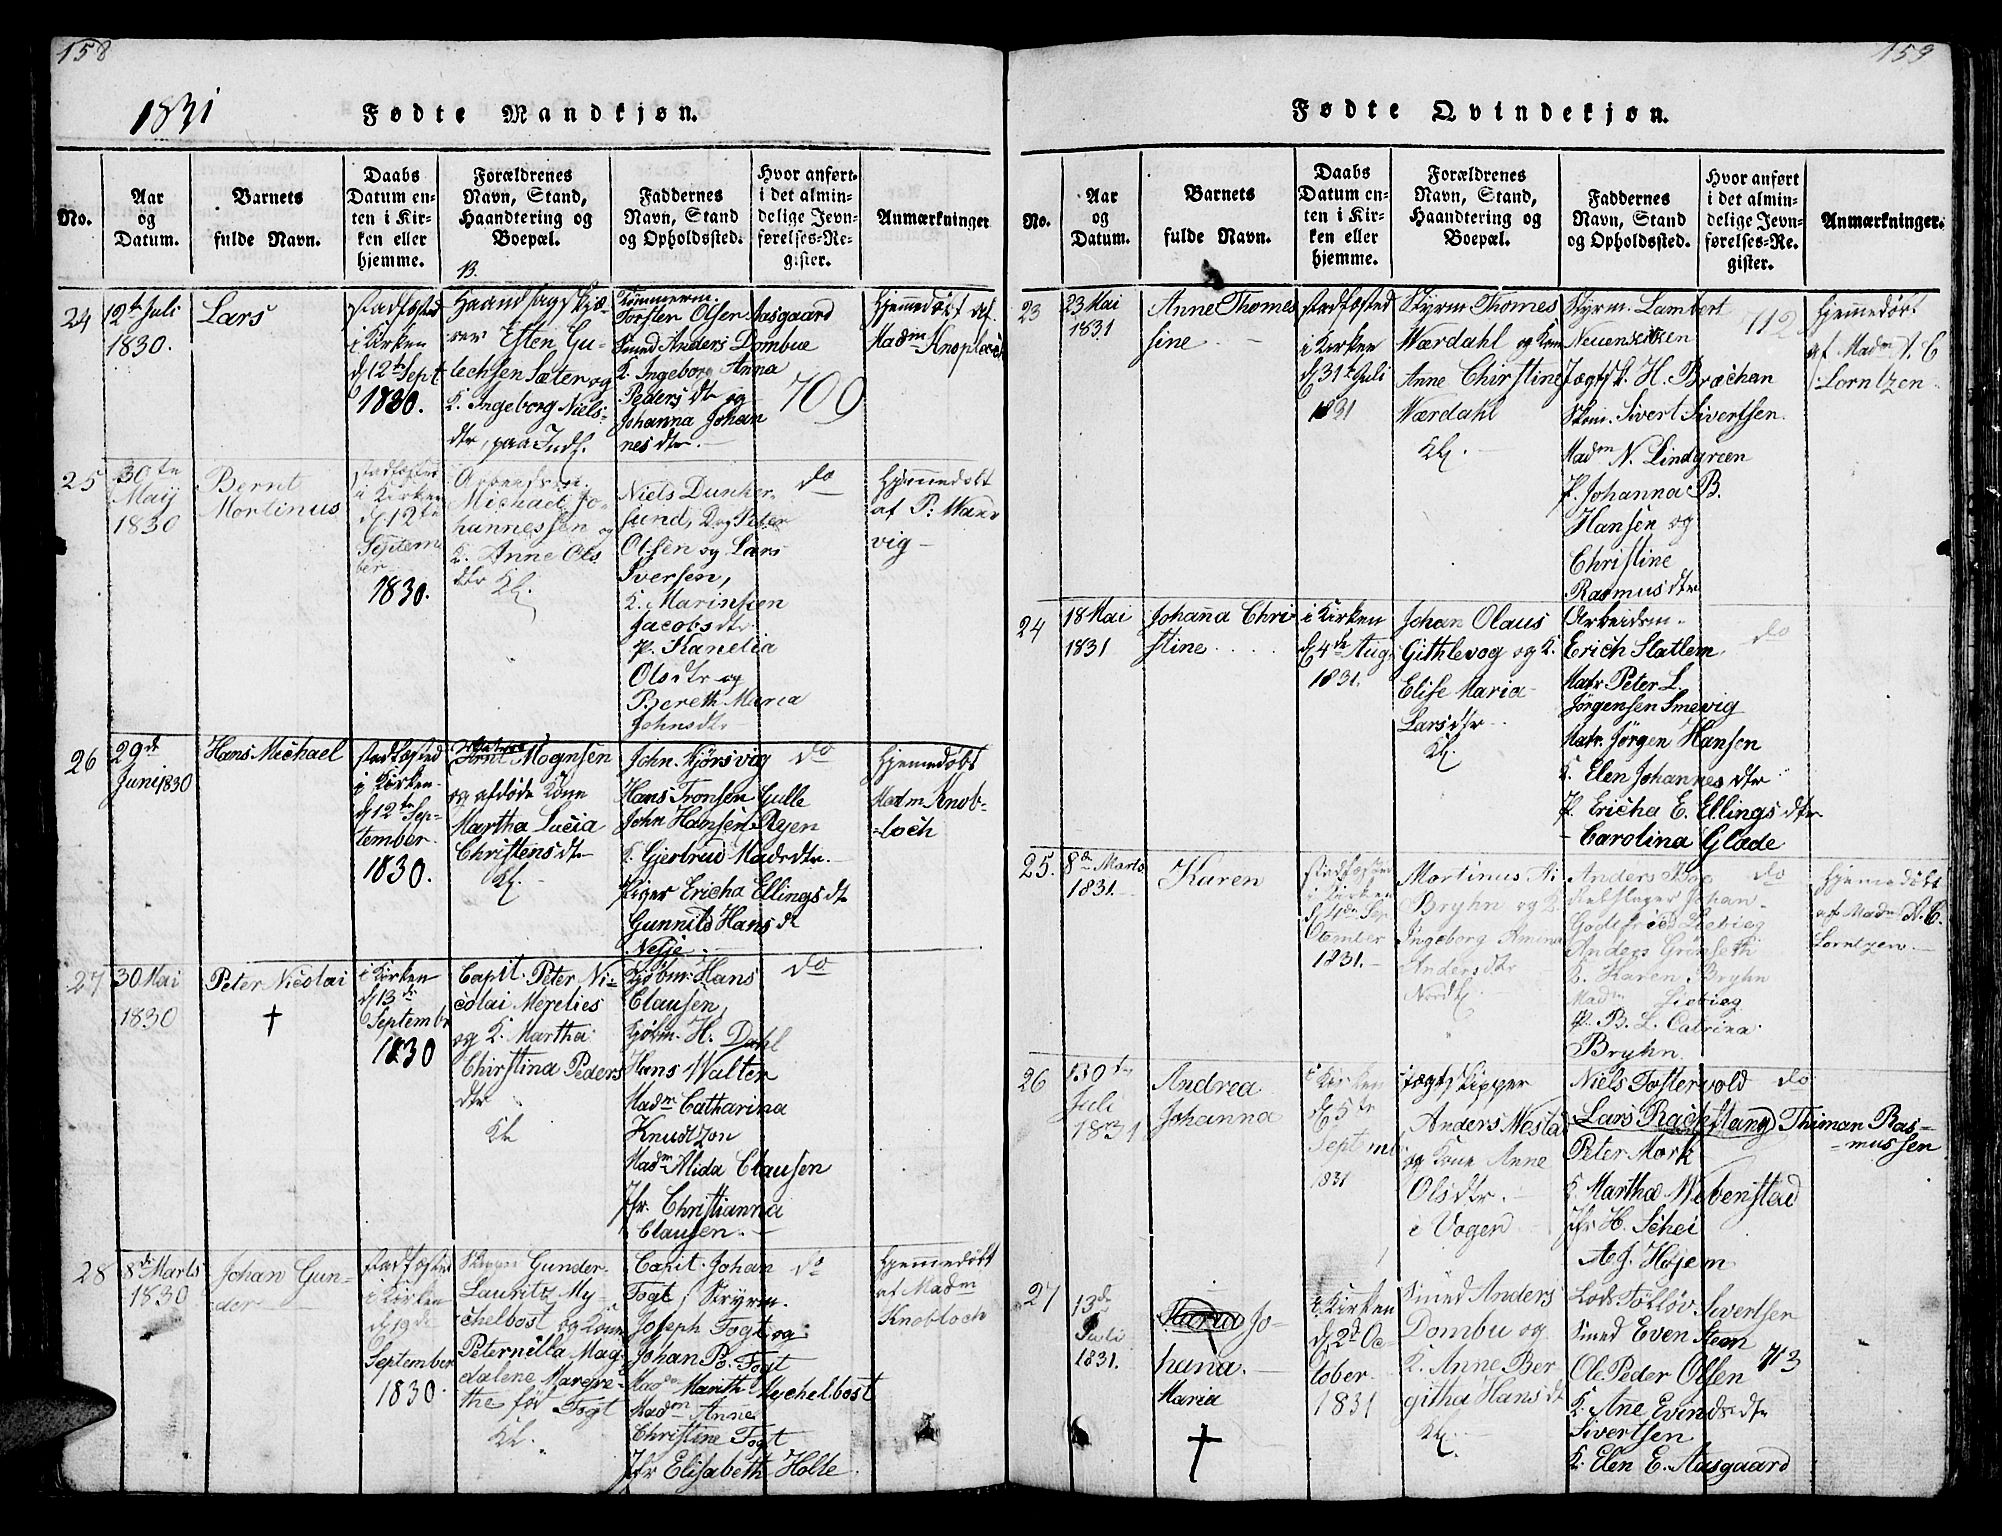 158
1831
Fødte Mandkjøn.
No.
Aar
og
Datum.
Barnets
fulde Navn.
Daabs
Datum en-
ten i Kir-
ken eller
hjemme.
Forældrenes
Navn, Stand,
Haandtering og
Boepæl.
Faddernes
Navn, Stand
og Opholdssted.
Hvor anført
i det almin-
delige Jevn-
førelses-Re-
gister.
Anmærkninger
24
12te Juli
1830.
Lars
stadfæsted
i Kirken
d 12te Sept
1830.
Haandsagskjø-
rer Esten Gu-
lechsen Sæter og
K. Ingeborg Niels-
dtr, paa Indl.
Tømmerm.
Torsten Olsen Aasgaard
Smed Anders Dombue
K. Ingeborg Anna
Peders dtr og
Johanna Johan
nesdtr.
709
Hjemmedøbt af
Madm Knoploch
25
30te
Maij
1830
Bernt
Mortinus
stadfæsted
i Kirken
d 12te
Septem
ber
1830.
Arbeidsm.
Michael Jo-
hannessen og
K. Anne Ols
dtr Kl.
Niels Dunker-
sund, Peter
Olsen og Lars
Iversen,
K. Marinken
Jacobsdtr
P. Kanelia
Olsdtr og
Bereth Maria
Johnsdtr
do
Hjemmedøbt
af P: Wand
vig
26
29de
Juni 1830
Hans Michael
stadfæsted
i Kirken
d 12te Sep-
tember
1830.
Arnt Mognsen
og afdøde Kone
Martha Lucia
Christensdtr
Kl.
John Kjørsvig
Hans Tronsen Gulle
John Hansen Ryen
K. Gjertrud Madsdtr.
Piger Ericha Ellings dtr
Gunnild Hans dtr
Nesje.
do
Hjemmedøbt
Madm Knob-
-loch
27
30 Mai
1830
Peter Nicolai
†
i Kirken
d 13de
Septembr
1830
Capit. Peter Ni-
colai Merelies
og K. Martha
Chirstina Peders
dtr
Kl
Kjøbm: Hans
Clausen,
Kjøbm. H. Dahl
Hans Walter
Madm Catharina
Knudtzon
Madm Alida Clausen
Jfr. Christianna
Clausen.
do
28
8de Marts
1830
Johan Gun-
der
stadfæsted
i Kirken
d 19de
September
1830.
Gunder
Lauritz My-
chelbost og Kone
Peternella Mag-
dalene Margre-
the fød Fogt
Kl.
Capit. Johan
Fogt, Styrm.
Joseph Fogt og
Johan Po. Fogt
Madm Marith Mychelbost
Madm Anne
Christine Fogt
Jfr Elisabeth Holte
do
Hjemmedøbt
af Madm
Knobloch
159
Fødte Qvindekjøn.
No.
Aar
og
Datum.
Barnets
fulde Navn.
Daabs
Datum en-
ten i Kir-
ken eller
hjemme.
Forældrenes
Navn, Stand,
Haandtering og
Boepæl.
Faddernes
Navn, Stand
og Opholdssted.
Hvor anført
i det almin-
delige Jevn-
førelses-Re.
gister.
Anmærkninger.
23
23 Mai
1831
Anne Thomes
sine
stadfæsted
i Kirken
d 31te Juli
1831
Styrm Thomes
Wærdahl og Kone
Anne Chirstine
Wærdahl
Kl.
Styrm. Lambert
Neuenskiken
Jægtsk. H. Brochan
Skom. Sivert Sivertsen
Madm N. Lindgreen
P. Johanna B.
Hansen og
Christine
Rasmusdtr
712
Hjemmedøbt
af Madm A. C
Lorntzen
24
18 Mai
1831
Johanna Chri
stine
i Kirken
d 4de Aug
1831.
Johan Olaus
Githlevog og K.
Elise Maria
Larsdtr
Kl.
Arbeidsm.
Erich Slatlem
Matr Peter L.
Jørgensen Smevig
Matr. Jørgen Hansen
K. Elen Johannesdtr
P. Ericha E. Ellingsdtr
- Carolina Glade
do
25.
8de Marts
1831.
Karen
stadfæsted
i Kirken
d 4de Se
ptember
1831.
Mortinus Ai
Bryhn og K
Ingeborg Amina
Andersdtr
Nordl.
Anders Boe
Rebslager Johan
Godtfried Liebieg
Anders Grønseth
K. Karen Bryhn
Madm Liebieg
P. B. L. Catrina
Bryhn.
do
Hjemmedøbt
af Madm A. C.
Lorntzen.
26
130te
Juli
1831
Andrea
Johanna
i Kirken
d 5te
Septemb
1831
Jægtskipper
Anders Mostad
og Kone Anne
Olsdtr.
i Vogen
Niels Fostervold
Lars Rachstang Thiman Ras-
-mussen
Peter Mork
K. Martha Webenstad
Jfr H. Schei
A. J. Højem
do
27
13de
Juli
1831.
Maria Jo-
hana.
Maria
†
i Kirken
d 2d Oc-
tober
1831
Smed Anders
Dombu og
K. Anne Ber
githa Hans dtr
Kl.
Lods Tølløv Sivertsen
Smed Even Steen
Ole Peder Olsen
K. Ane Evindsdtr
Sivertsen
K. Elen E. Aasgaard
713